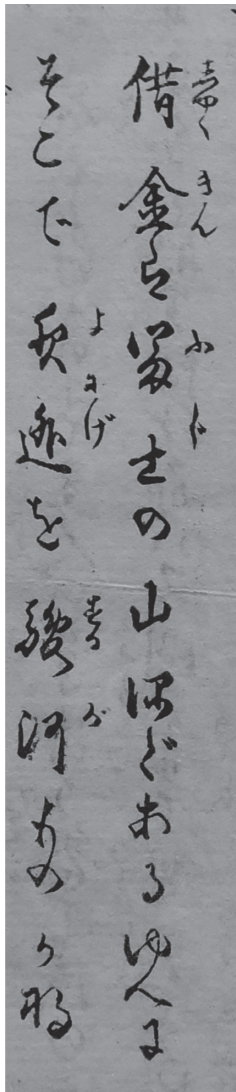 借金は富士の山ほどあるゆへに
そこで夜逃を駿河ものかな